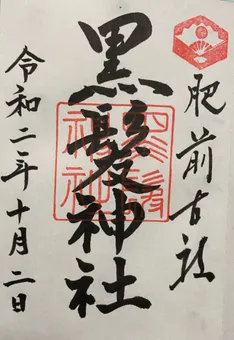 肥前古社
黒髪神社
黒髪
神社
令和二年十月二日